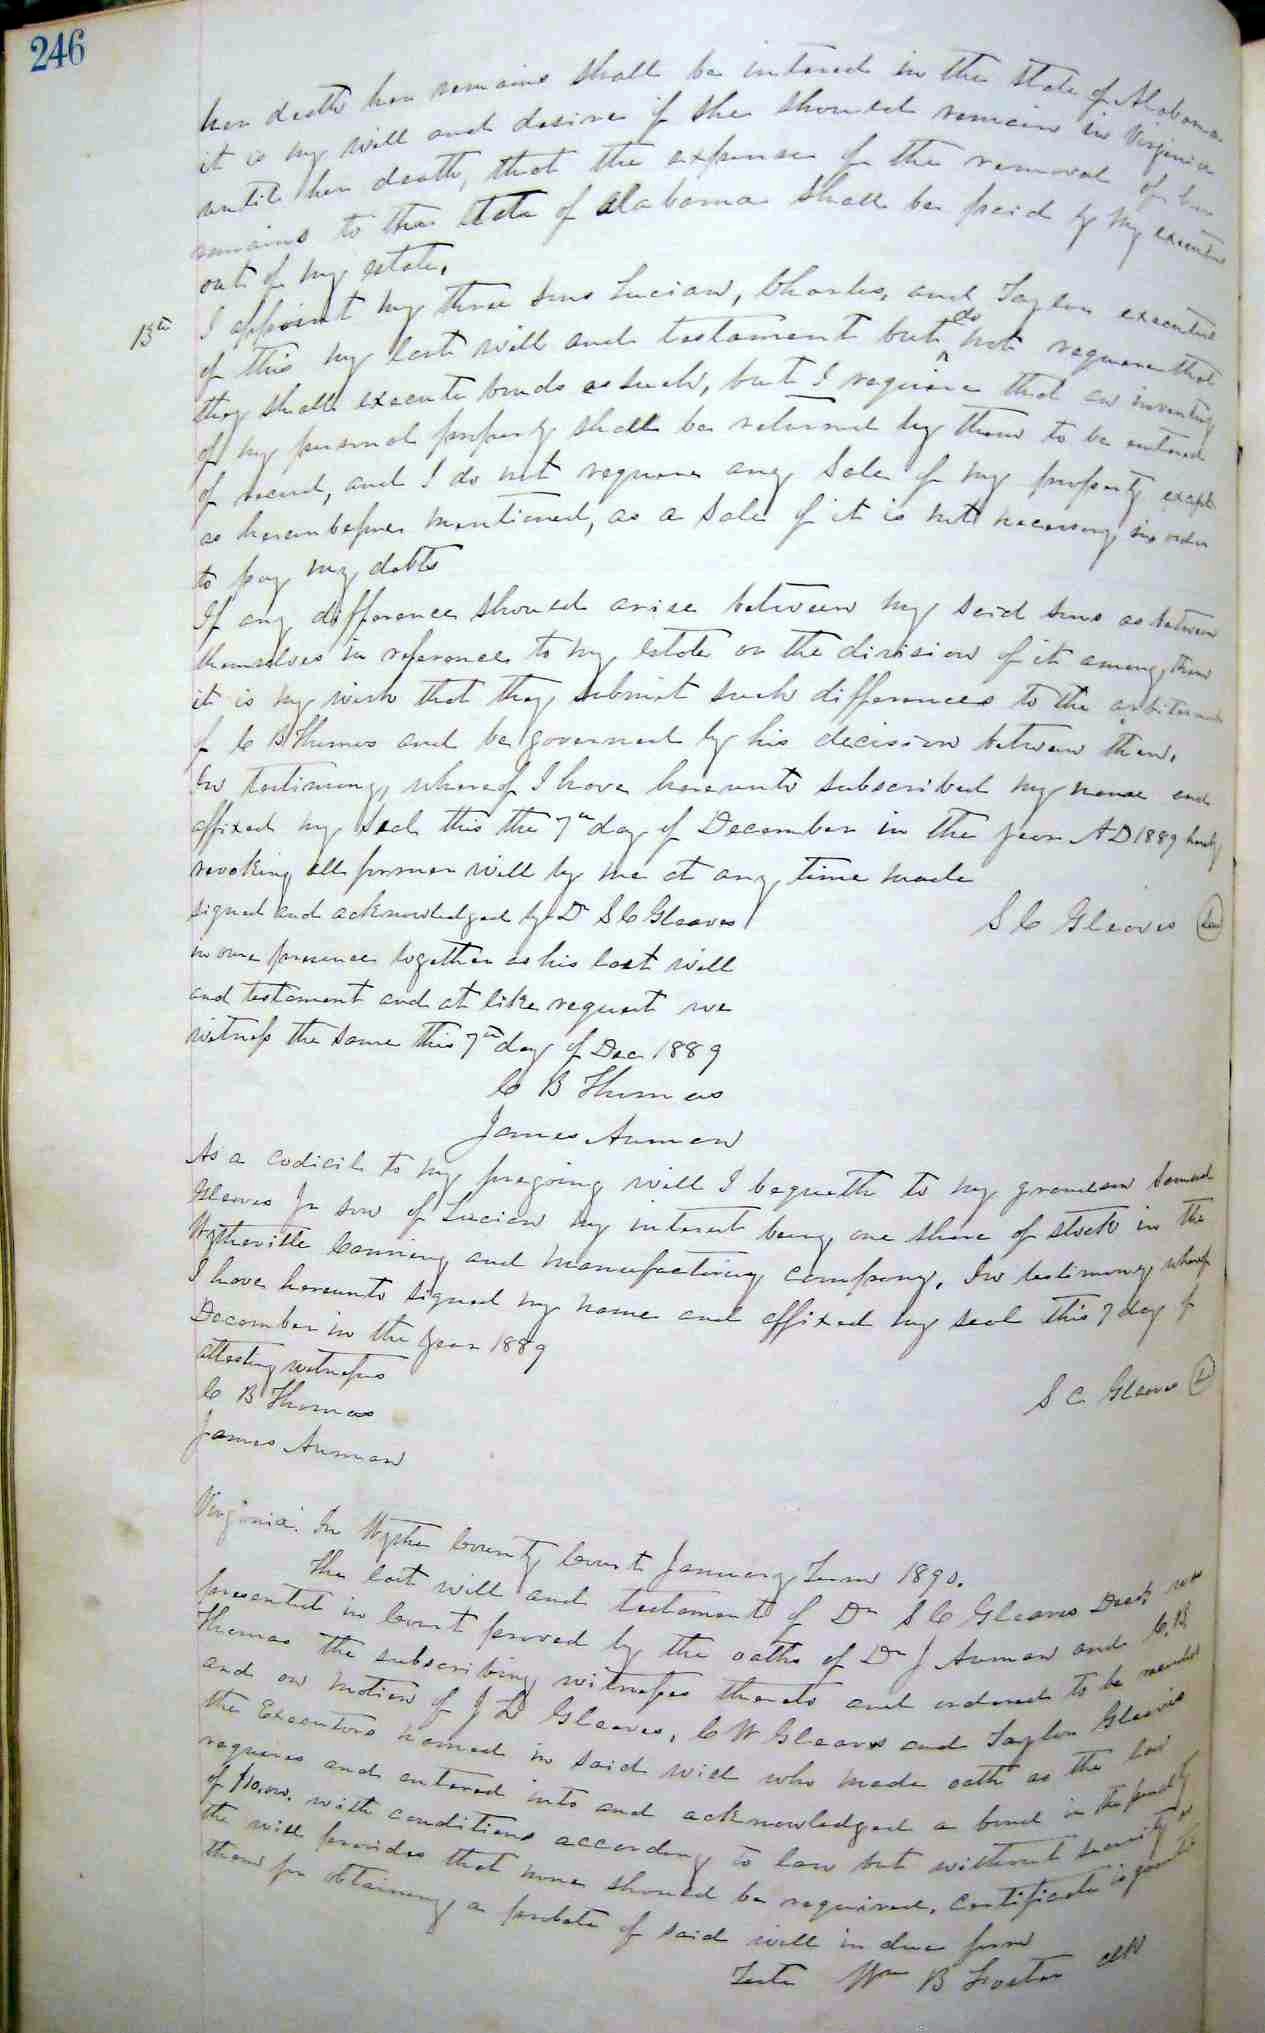 246
her death her remains shall be intered in the State of Alabama
it is my will and desire if she should remain in Virginia
until her death, that the expense of the removal of her
remains to the State of Alabama shall be paid by my executors
out of my estate.
13th I appoint my three sons Lucian, Charles, and Taylor executors
of this my last will and testament but do not require that
they shall execute bonds as such, but I require that an inventory
of my personal property shall be returned by them to be entered
of record, and I do not require any sale of my property except
as hereinbefore mentioned, as a sale of it is not necessary in order
to pay my debts
If any difference should arise between my said sons as between
themselves in reference to my estate or the division of it among them
it is my wish that they submit such differences to the arbitrament
of C B Thomas and be governed by his decision between them.
In testimony whereof I have hereunto subscribed my name and
affixed my seal this the 7th day of December in the year AD 1889 hereby
revoking all former will by me at any time made
S C Gleaves Seal
signed and acknowledged by Dr S C Gleaves
in our presence together as his last will
and testament and at like request we
witness the same this 7th day of Dec 1889
C B Thomas
James Auman
As a codicil to my foregoing will I bequeath to my grandson Samuel
Gleaves Jr son of Lucian my interest being one share of stock in the
Wytheville Canning and Manufacturing Company. In testimony whereof
I have hereunto signed my name and affixed my seal this 7 day of
December in the year 1889
attesting witnesses
S C Gleaves
C B Thomas
James Auman
Virginia: In Wythe County Court January Term 1890.
The last will and testament of Dr S C Gleaves Decd was
presented in Court proved by the oaths of Dr J Auman and C.B.
Thomas the subscribing witnesses thereto and ordered to be recorded
and on motion of J L Gleaves, C W Gleaves and Taylor Gleaves
the Executors named in said will who made oath as the law
requires and entered into and acknowledged a bond in the penalty
of with conditions according to law but without security as
the will provides that none should be required. Certificate is granted
them for obtaining a probate of said will in due form
Teste Wm B Foster clk